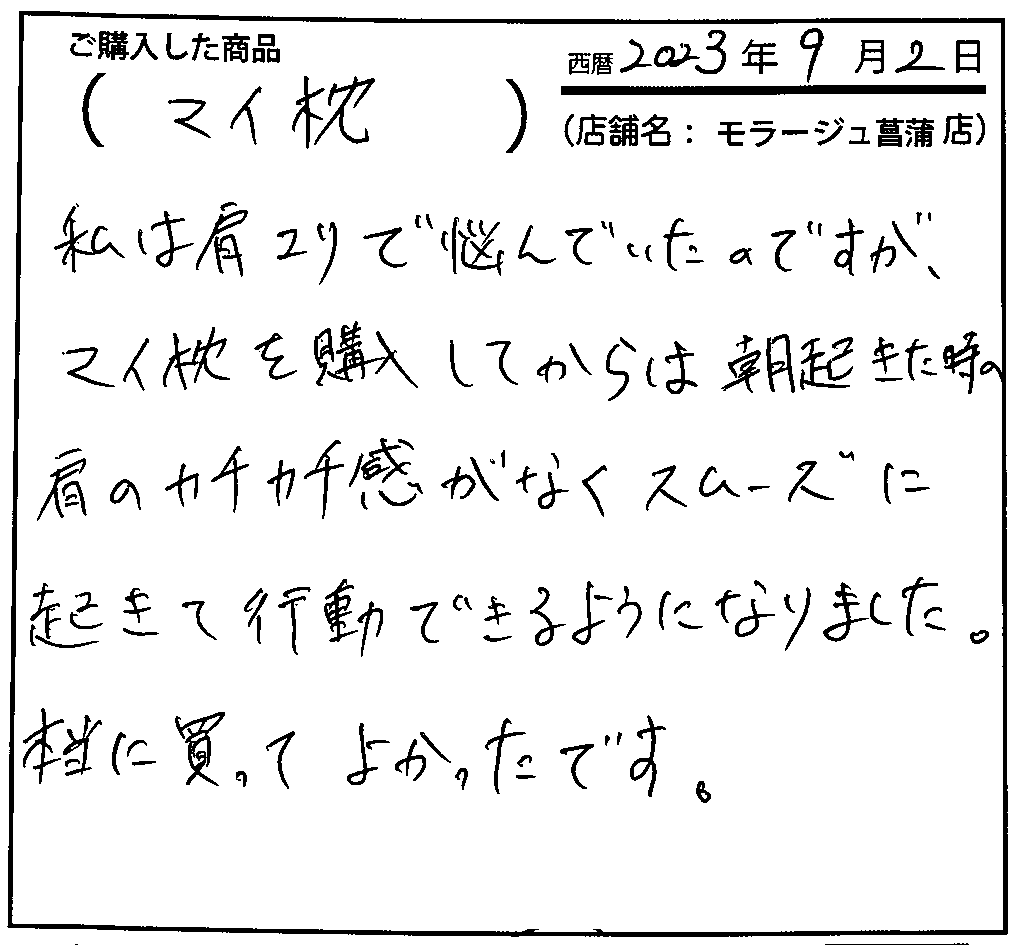 ご購入した商品
西暦 2023年 9月2日
( マイ枕 )
(店舗名：モラージュ菖蒲店)
私は肩コリで悩んでいたのですが、
マイ枕を購入してからは朝起きた時の
肩のカチカチ感がなくスムーズに
起きて行動できるようになりました。
本当に買ってよかったです。